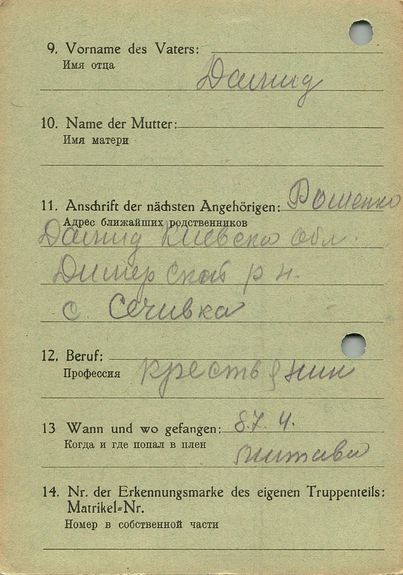 9. Vorname des Vaters:
Имя отца
Данид
10. Name der Mutter:
Имя матери
11. Anschrift der nächsten Angehörigen: Рошенко
Адрес ближайших родственников
Данид Киевска обл.
Димерской р н.
с. Сечивка
12. Beruf:
Профессия крестьянин
13 Wann und wo gefangen: 8.7.4.
Когда и где попал в плен
14. Nr. der Erkennungsmarke des eigenen Truppenteils:
Matrikel=Nr.
Номер в собственной части